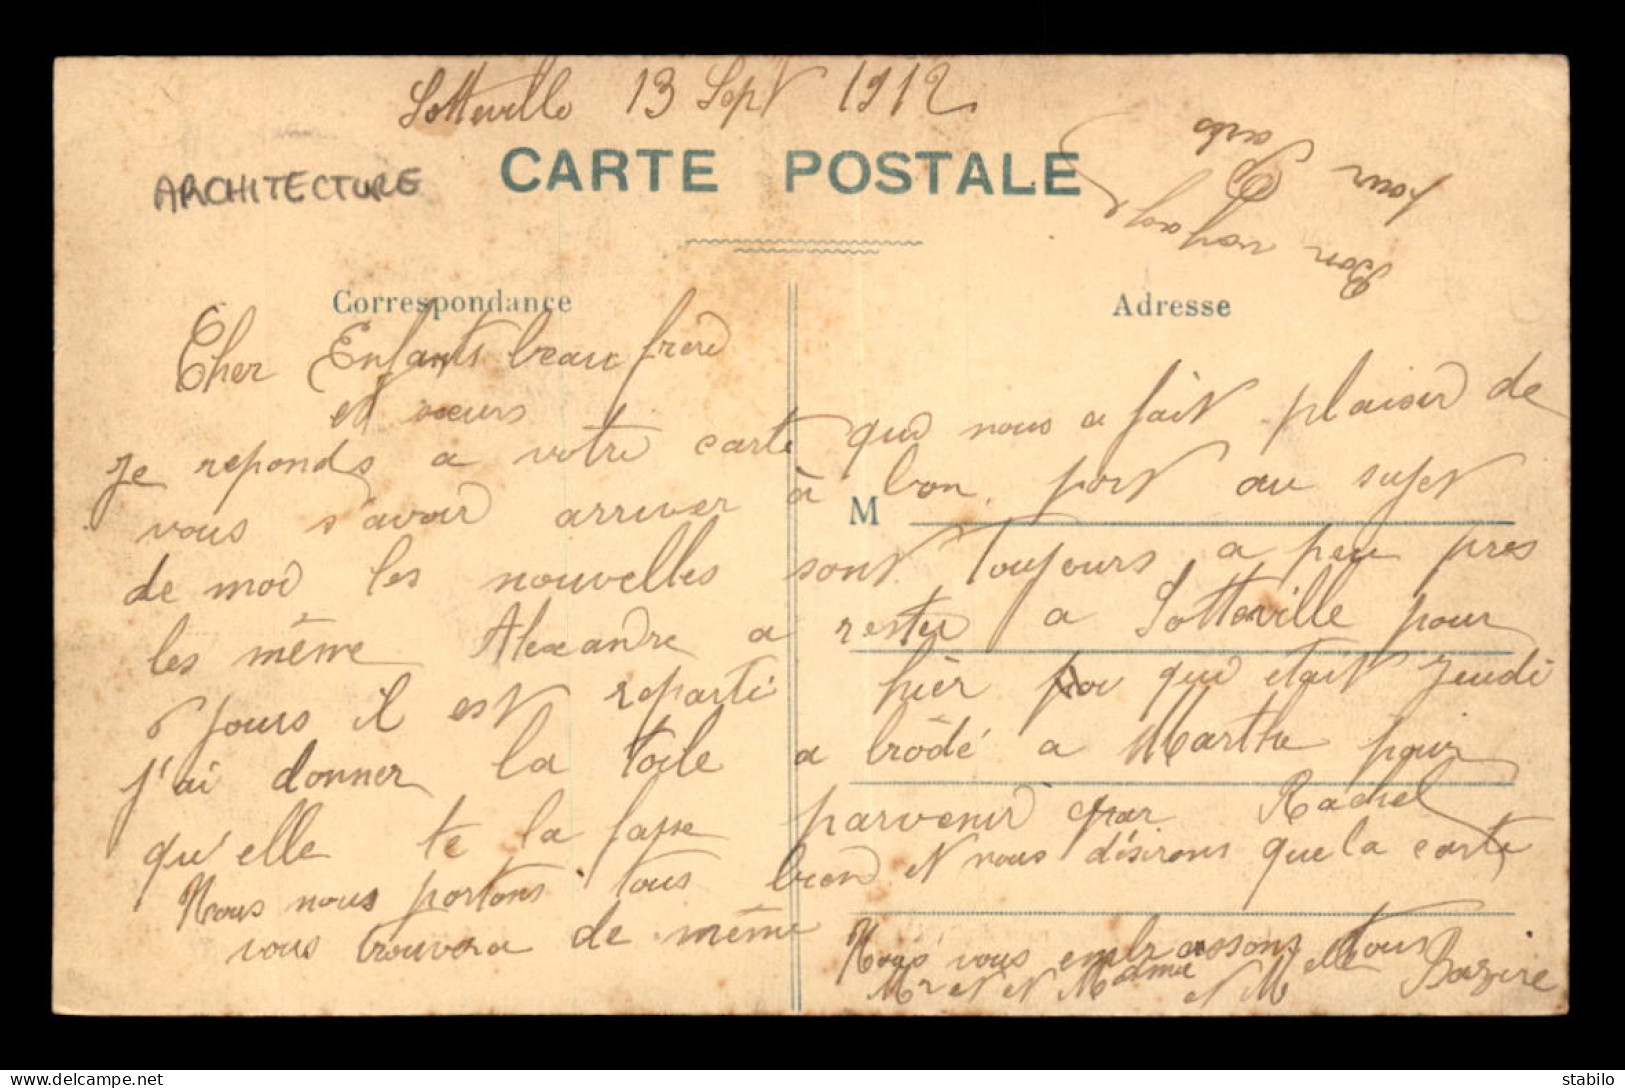 Sotteville 13 Sept 1912
ARCHITECTURE
CARTE POSTALE
Bon voyage
pour Paris
Correspondance
Adresse
M
Cher Enfants beau frere
et sœurs
je reponds a votre carte qui nous a fait plaisir de
vous s'avoir arriver à bon port au sujet
de moi les nouvelles sont toujours a peu pres
les même Alexandre a rester a Sotteville pour
6 jours il est reparti hier qui etait jeudi
j'ai donner la toile a brodé a Marthe pour
qu'elle te la fasse parvenir par Rachel
Nous nous portons tous bien et nous désirons que la carte
vous trouvera de même
Nous vous embrassons tous
Mr et Madame et Melle Bazire
delcampe.net
stabilo